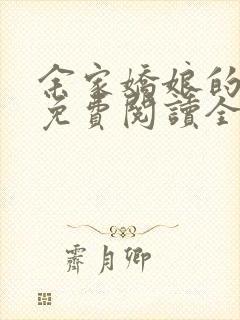 余家嬌娘的
免費閱讀全
霽月卿